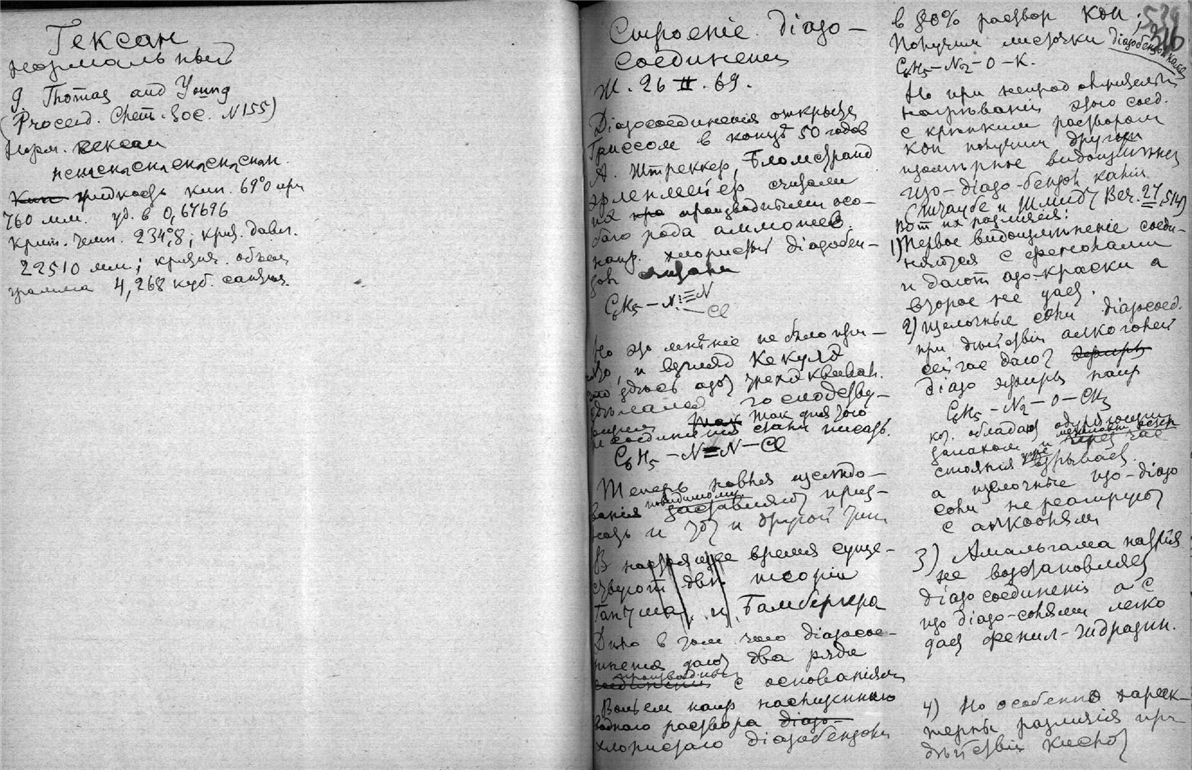 Гексан
нормальный
Д. Thomas and Young
(Proceed. Chem. Soc. N155)
Норм. гексан
жидкость кип. 69°0 при
760 мм. уд. в 0,67696
Крит. темп. 234,°8; крит. давл.
22510 мм; критич. объем
грамма 4,268 куб. сантим.
Строенiе дiазо-
соединенiй
Ж. 26 II. 69.
Дiазосоединенiя открыты
Гриссом в концѣ 50 годов
А. Штреккер, Бломстранд
Эрленмейер считали
их про производными осо-
баго рода аммонiев
напр. хлористый дiазобен-
зол
C6H5 – N ≡ N
– Cl
Но это мнѣнiе не было при-
и взгляд Кекуле
что здѣсь азот трехэквивал.
сдѣлался господству-
ющим так что
соединенiя стали писать
C6H5 – N = N – Cl
Теперь новыя изслѣдо-
повидимому
ванiя заставляют приз-
нать и тот и другой тип
В настоящее время суще-
ствуют двѣ теорiи
Ганча и Бамбергера
Дѣло в том что дiазосое-
диненiя дают два ряда
производных
соединенiй с основанiями
Возьмем напр насыщенный
водный раствор дiазо-
хлористаго дiазобензола
в 80% раствор KOH;
Получим листочки дiазобензолкалiя
C6H5 – N2 – O – K.
Но при непродолжительном
нагрѣванiи этого соед.
с крѣпким раствором
KOH получим другое
изомерное видоизмѣненiе
изо-дiазо-бензол калiй
(Шраубе и Шмидт Ber. 27, 514)
Вот их различiя:
1) Первое видоизмѣненiе соеди-
няется с фенолами
и дают азо-краски а
второе не дает.
2) Щелочные соли дiазосоед.
при дѣйствiи алкоголей
сейчас дают эфиры
дiазо эфиры напр
C6H5 – N2 – O – CH3
кот. обладает одуряющим
запахом и
стоянiя уже через час
взрывает
а щелочные изо-дiазо
соли не реагируют
с алкоголями
3) Амальгама натрiя
не возстановляет
дiазосоединенiй а с
изо дiазо-солями легко
дает фенил-гидразин.
4) Но особенно харак-
терны различiя при
дѣйствiи кислот